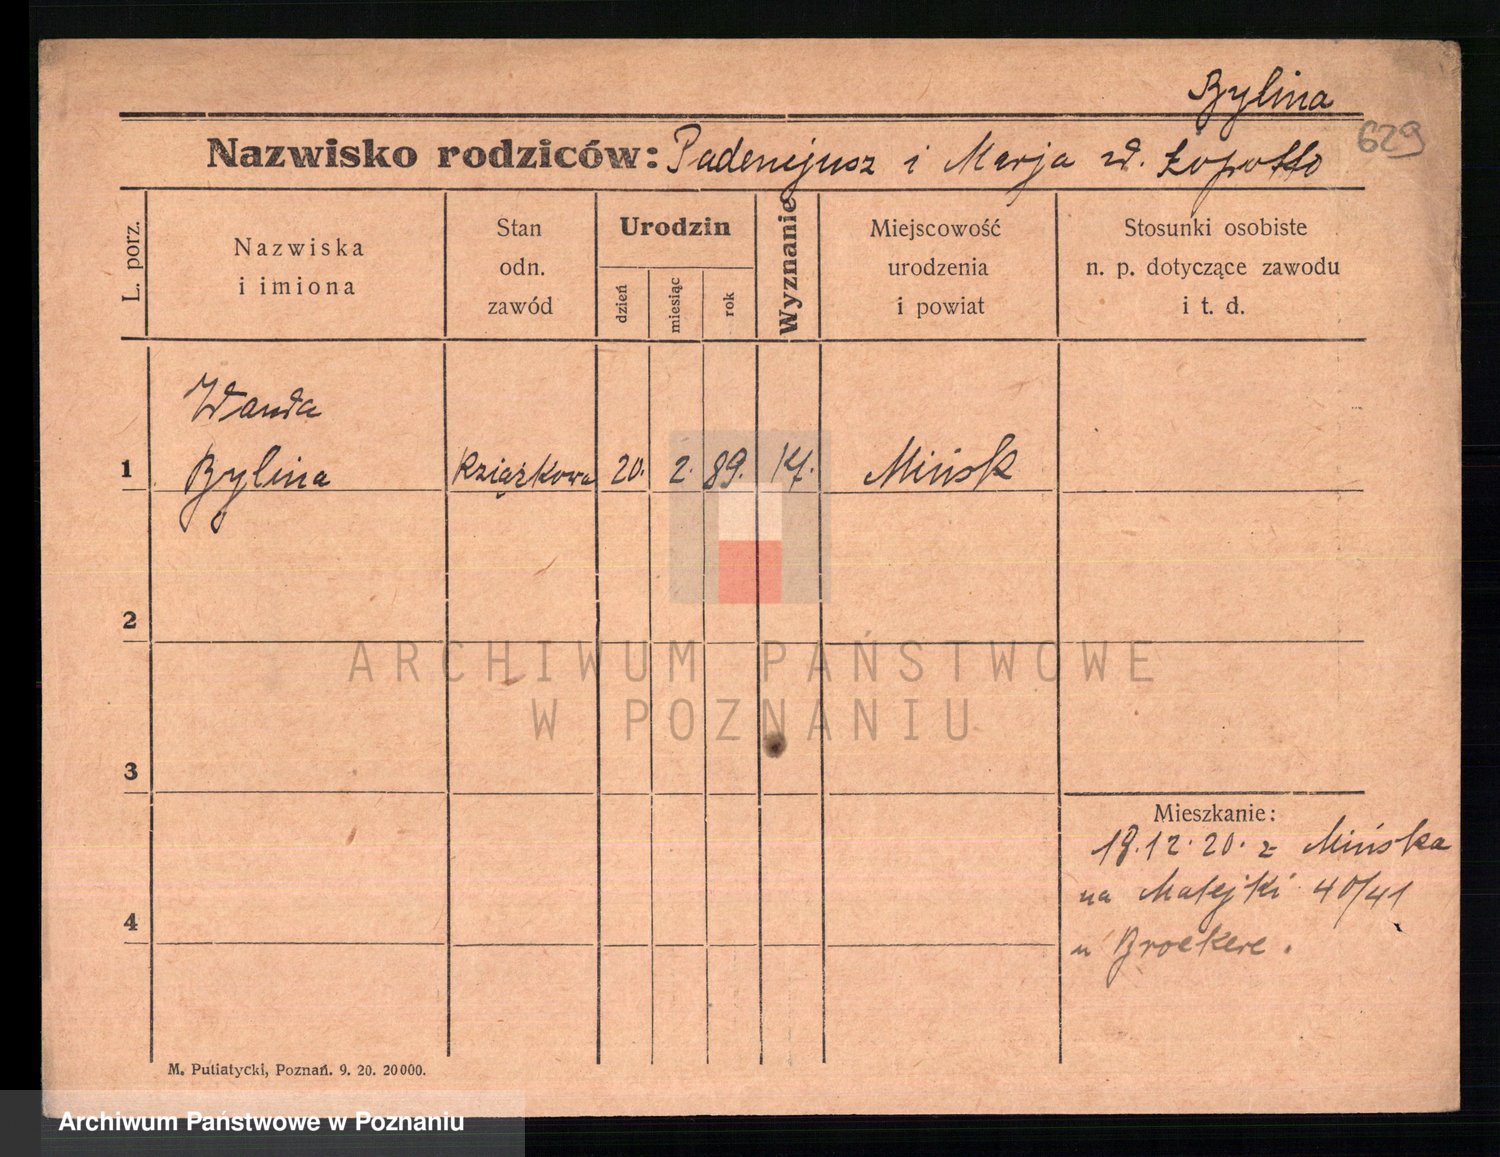 Bylina
629
Nazwisko rodziców: Padenejusz i Marja z d. Łopotto
L. porz.
Nazwiska
i imiona
Stan
odn.
zawód
Urodzin
dzień
miesiąc
rok
Wyznanie
Miejscowość
urodzenia
i powiat
Stosunki osobiste
n. p. dotyczące zawodu
i t. d.
Wanda
1 Bylina Książkowa 20. 2. 89. kt. Mińsk
2
ARCHIWUM PAŃSTWOWE
W POZNANIU
3
Mieszkanie:
18.12.20. z Mińska
na Matejki 40/41
4
u Broekere.
M. Putiatycki, Poznań. 9. 20. 20000.
Archiwum Państwowe w Poznaniu